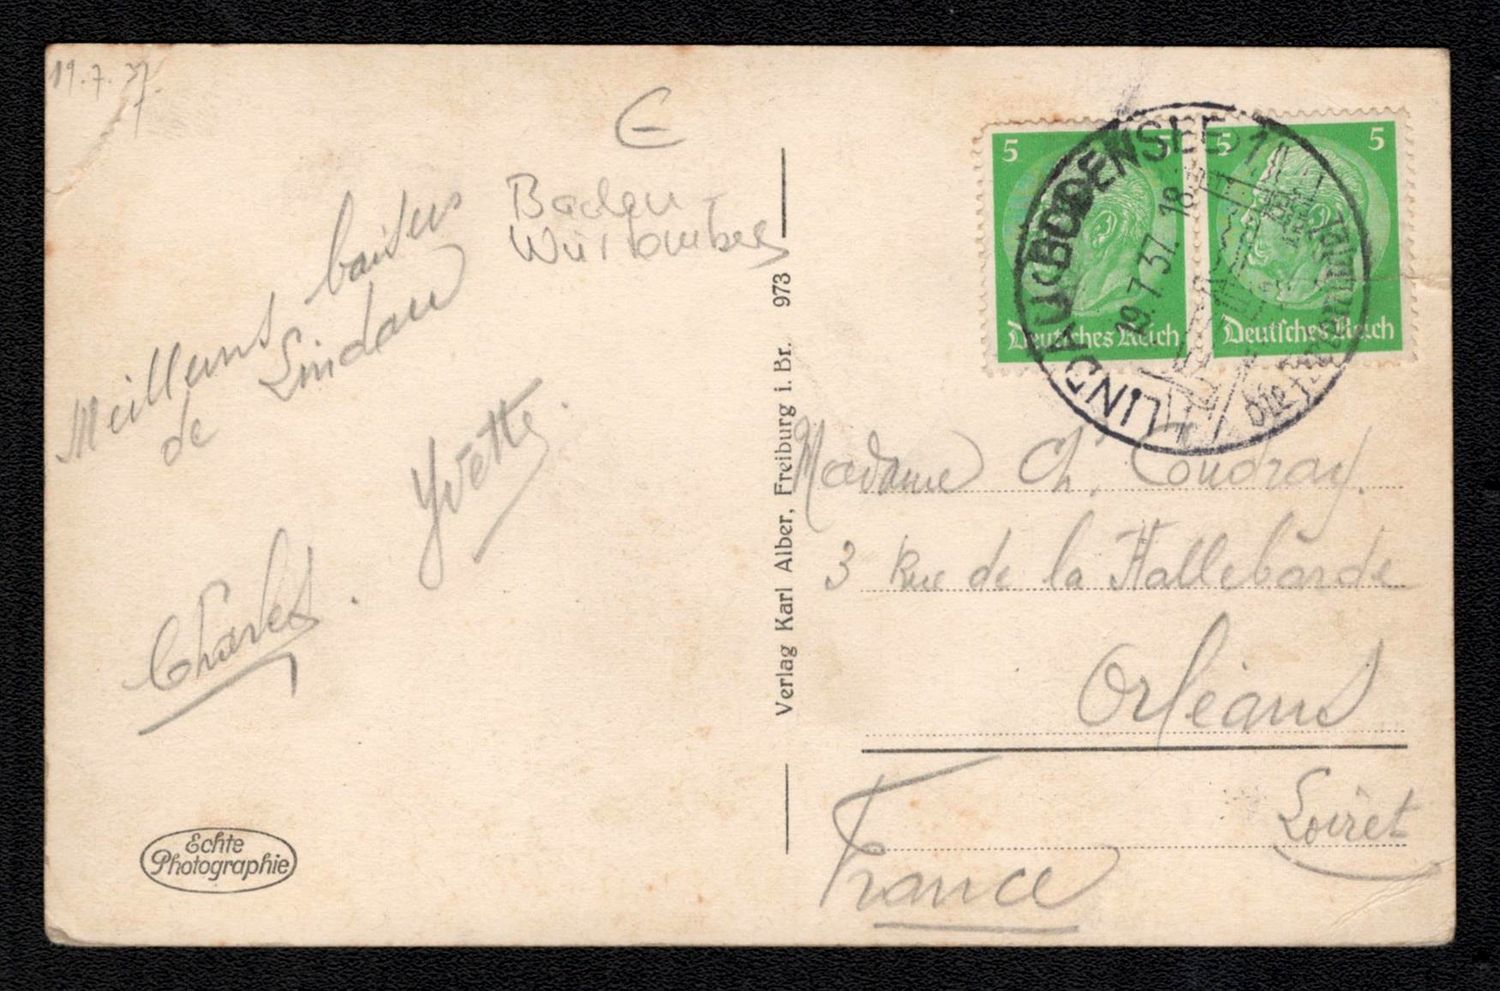 19.7.37.
E
Baden-
Würtemberg
Meilleurs baisers
de Lindau
Yvette.
Charles.
Echte
Photographie
Verlag Karl Alber, Freiburg i. Br. 973
5 5
Deutsches Reich
5 5
Deutsches Reich
LINDAU (BODENSEE) 1
19.7.37. 18
Madame Ch. Coudray.
3 Rue de la Hallebarde
Orléans
Loiret
France